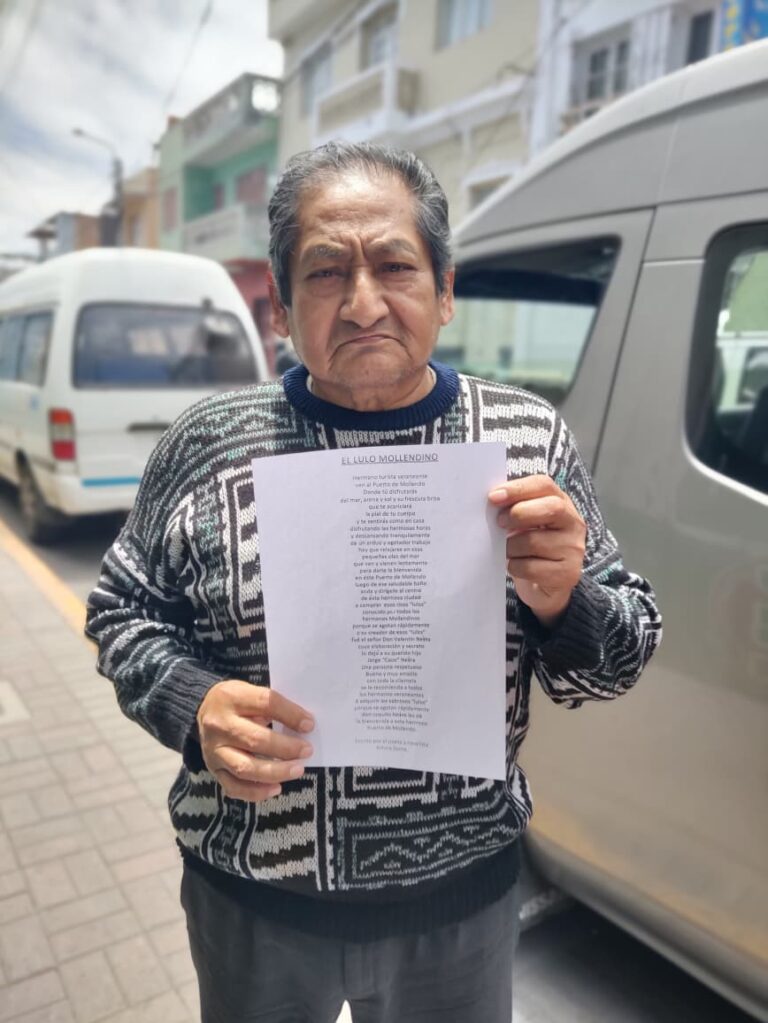 EL LULO MOLLENDINO
Hermano turista veraneante
ven al Puerto de Mollendo
Donde tú disfrutarás
del mar, arena y sol y su frescura brisa
que te acariciara
la piel de tu cuerpo
y te sentirás como en casa
disfrutando las hermosas horas
y descansando tranquilamente
de un arduo y agotador trabajo
hay que relajarse en esas
pequeñas olas del mar
que van y vienen lentamente
para darte la bienvenida
en este Puerto de Mollendo
luego de ese saludable baño
acda y dirígete al central
de ésta hermosa ciudad
a comprar esos ricos "lulos"
conocido por todos los
hermanos Mollendinos
porque se agotan rápidamente
o su creador de esos "lulos"
fué el señor Don Valentín Neira
cuya elaboración y secreto
lo dejó a su querido hijo
Jorge "Coco" Neira
Una persona respetuosa
Buena y muy amable
con toda la clientela
se le recomienda a todos
los hermanos veraneantes
a adquirir los sabrosos "lulos"
porque se agotan rápidamente
don coquito Neira les da
la bienvenida a este hermoso
Puerto de Mollendo.
Escrito por el poeta y novelista